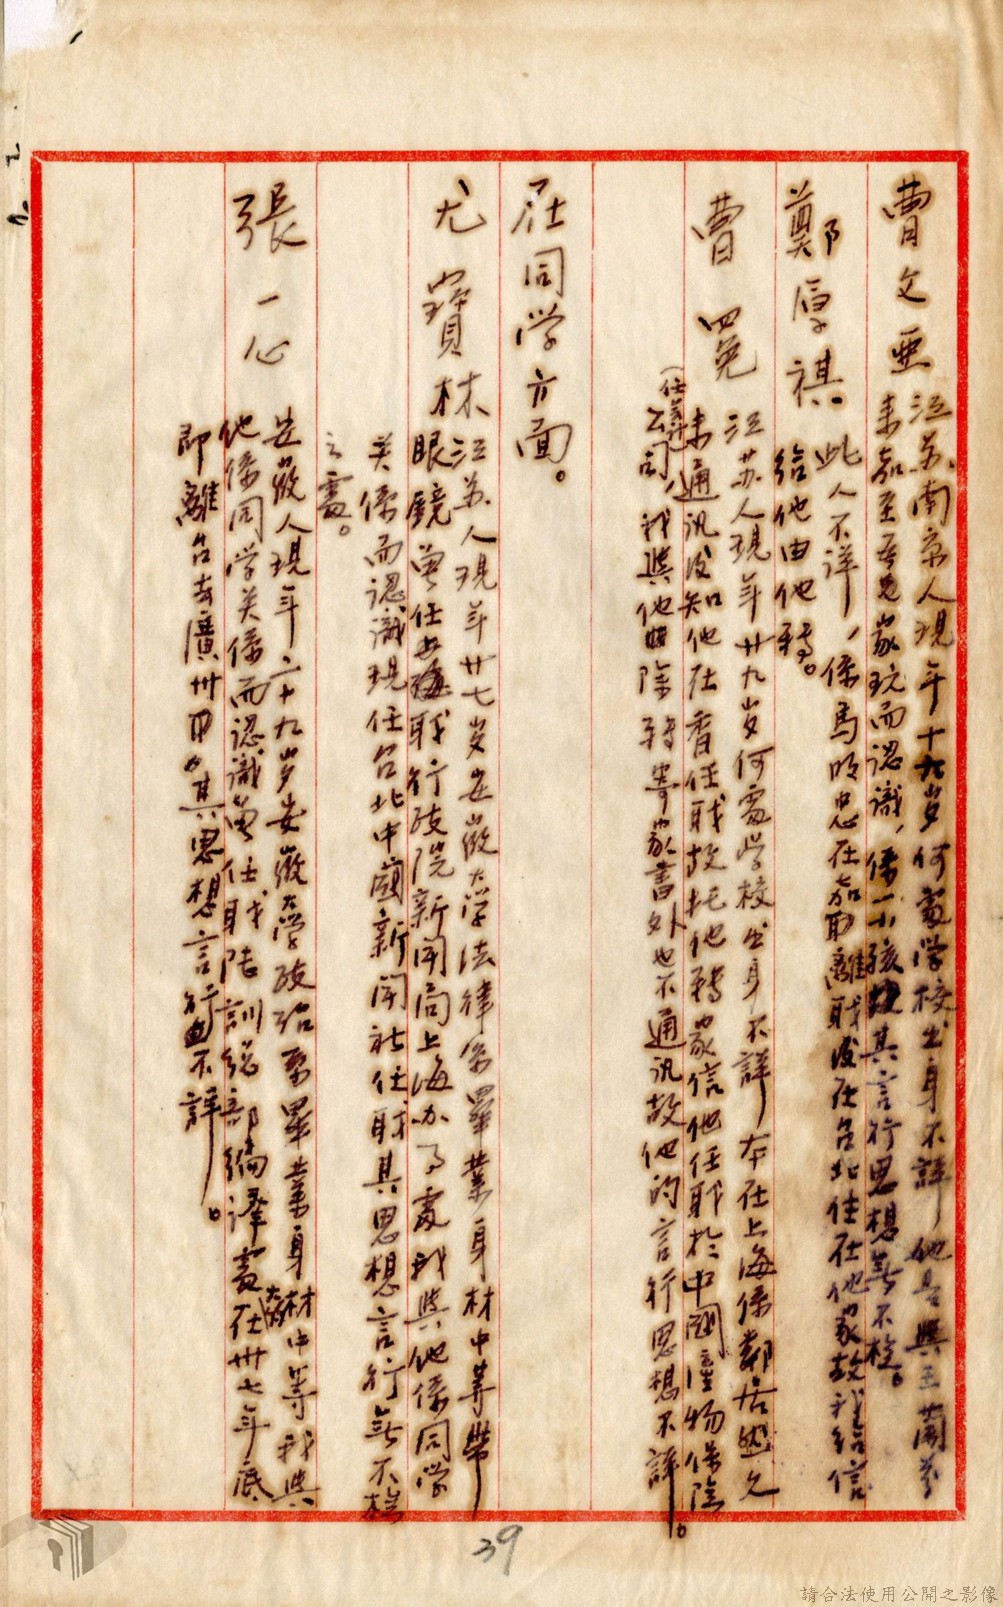 曹文亞
江苏南京人現年十九岁何處学校出身不詳他是與王蘭芬
來吾家玩而認識,係一小孩其言行思想無不檢。
鄭厚祺
此人不详,係馬明忠在嘉取離職後在台北住在他家故我給信
給他由他轉。
曹四冕
江苏人現年廿九岁何處学校出身不詳本在上海係鄰居他久
未通訊後知他在香任职故托他轉家信他任职於中國產物保險
公司,我與他除轉寄家書外也不通訊故他的言行思想不詳。
在同学方面。
尤寶林
江苏人現年廿七岁安徽大学法律系畢業身材中等帶
眼鏡曾任上海职行政院新闻局上海办事處我與他係同学
关係而認識現任台北中國新闻社任职其思想言行無不檢
之處。
張一心
安徽人現年二十九岁安徽大学政治系畢業身材中等我與
他係同学关係而認識曾任职陆訓总部编译處在卅七年底
即離台去廣州其思想言行不詳。
39
請合法使用公開之影像